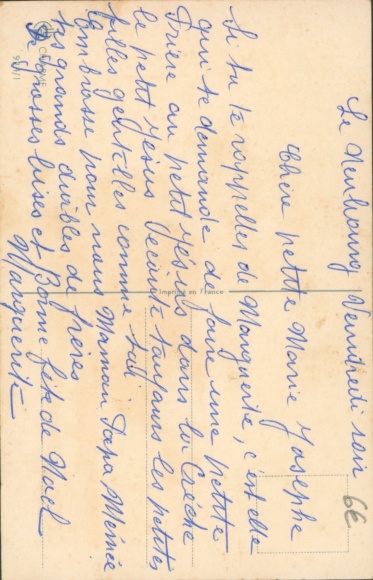 Le Neubourg Vendredi soir
Chère petite Marie Josephe
Si tu te rappelles de Marguerite, c'est elle
qui te demande de faire une petite
Prière au petit Jésus dans la Crèche
le petit Jésus écoute toujours les petites
filles gentilles comme toi
Embrasse pour nous Maman Papa Mémée
tes grands diables de frères
De grosses bises et Bonne fête de Noël
Marguerite
Imprimé en France
6€